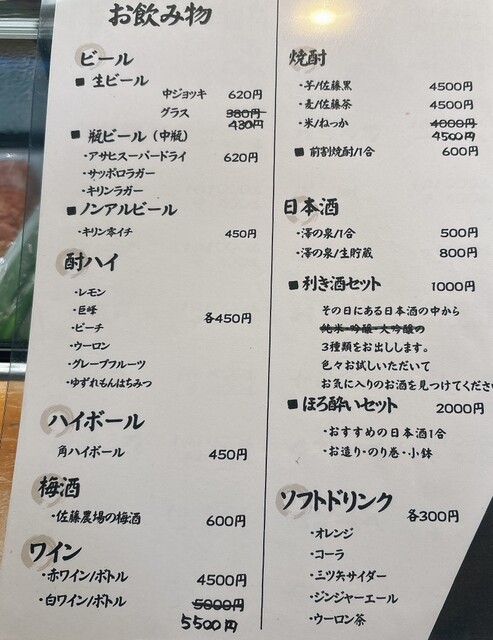 お飲み物
ビール
■ 生ビール
中ジョッキ 620円
グラス 380円
430円
■ 瓶ビール（中瓶）
・アサヒスーパードライ 620円
・サッポロラガー
・キリンラガー
■ ノンアルビール
・キリン零イチ 450円
酎ハイ
・レモン
・巨峰 各450円
・ピーチ
・ウーロン
・グレープフルーツ
・ゆずれもんはちみつ
ハイボール
角ハイボール 450円
梅酒
・佐藤農場の梅酒 600円
ワイン
・赤ワイン/ボトル 4500円
・白ワイン/ボトル 5000円
5500円
焼酎
・芋/佐藤黒 4500円
・麦/佐藤茶 4500円
・米/ねっか 4000円
4500円
■ 前割焼酎/1合 600円
日本酒
・澤の泉/1合 500円
・澤の泉/生貯蔵 800円
■ 利き酒セット 1000円
その日にある日本酒の中から
純米・吟醸・大吟醸の
3種類をお出しします。
色々お試しいただいて
お気に入りのお酒を見つけてくださ
■ ほろ酔いセット 2000円
・おすすめの日本酒1合
・お造り・のり巻・小鉢
ソフトドリンク
各300円
・オレンジ
・コーラ
・三ツ矢サイダー
・ジンジャーエール
・ウーロン茶